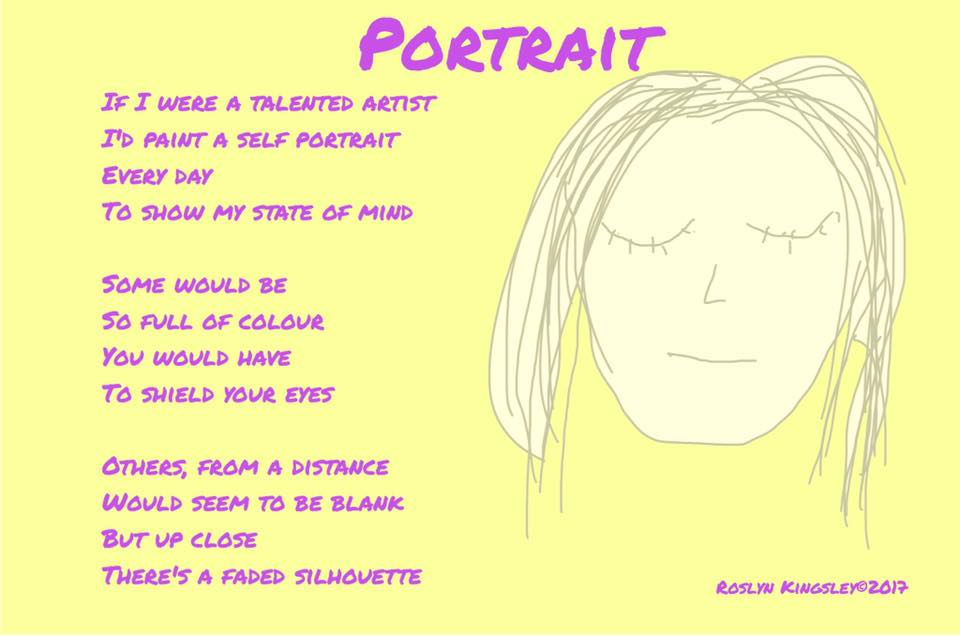 Portrait
If I were a talented artist
I'd paint a self portrait
Every day
To show my state of mind
Some would be
So full of colour
You would have
To shield your eyes
Others, from a distance
Would seem to be blank
But up close
There's a faded silhouette
Roslyn Kingsley©2017